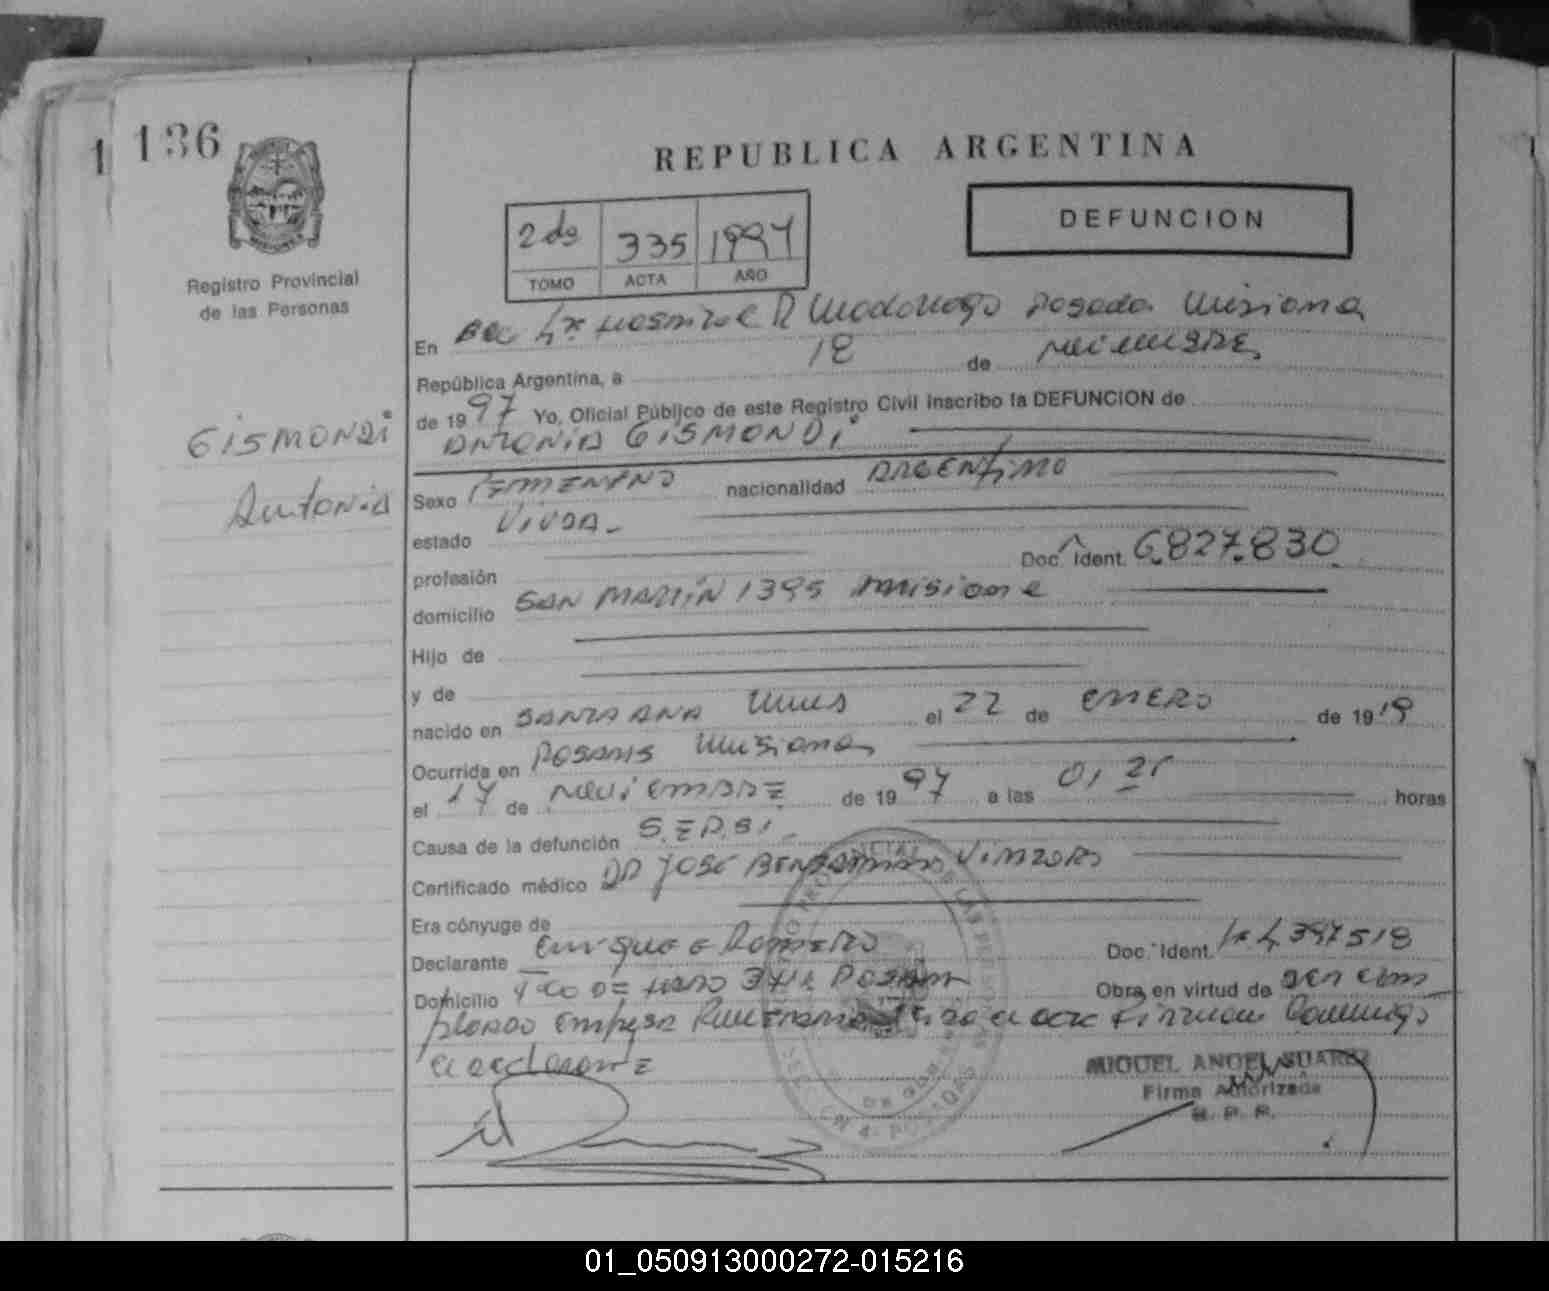 136
REPUBLICA ARGENTINA
DEFUNCION
2do 335 1997
TOMO ACTA AÑO
Registro Provincial
de las Personas
En Hospital R Madariaga Posadas Misiones
República Argentina, a 18 de noviembre
de 1997 Yo, Oficial Público de este Registro Civil inscribo la DEFUNCION de
ANTONIA GISMONDI
GISMONDI
Antonia
Sexo FEMENINO nacionalidad ARGENTINO
estado VIUDA
profesión Doc. Ident. 6.827.830
domicilio SAN MARTIN 1395 Misione
Hijo de
y de
nacido en SANTA ANA el 22 de ENERO de 1919
Ocurrida en POSADAS Misiones
el 17 de noviembre de 1997 a las horas
Causa de la defunción SEPSI
Certificado médico DR JOSE
Era cónyuge de
Declarante Enrique Romero Doc. Ident. 4.397518
Domicilio Obra en virtud de ser em
pleado empresa
el declarante
MIGUEL ANGEL SUAREZ
Firma Autorizada
R. P. P.
01_050913000272-015216